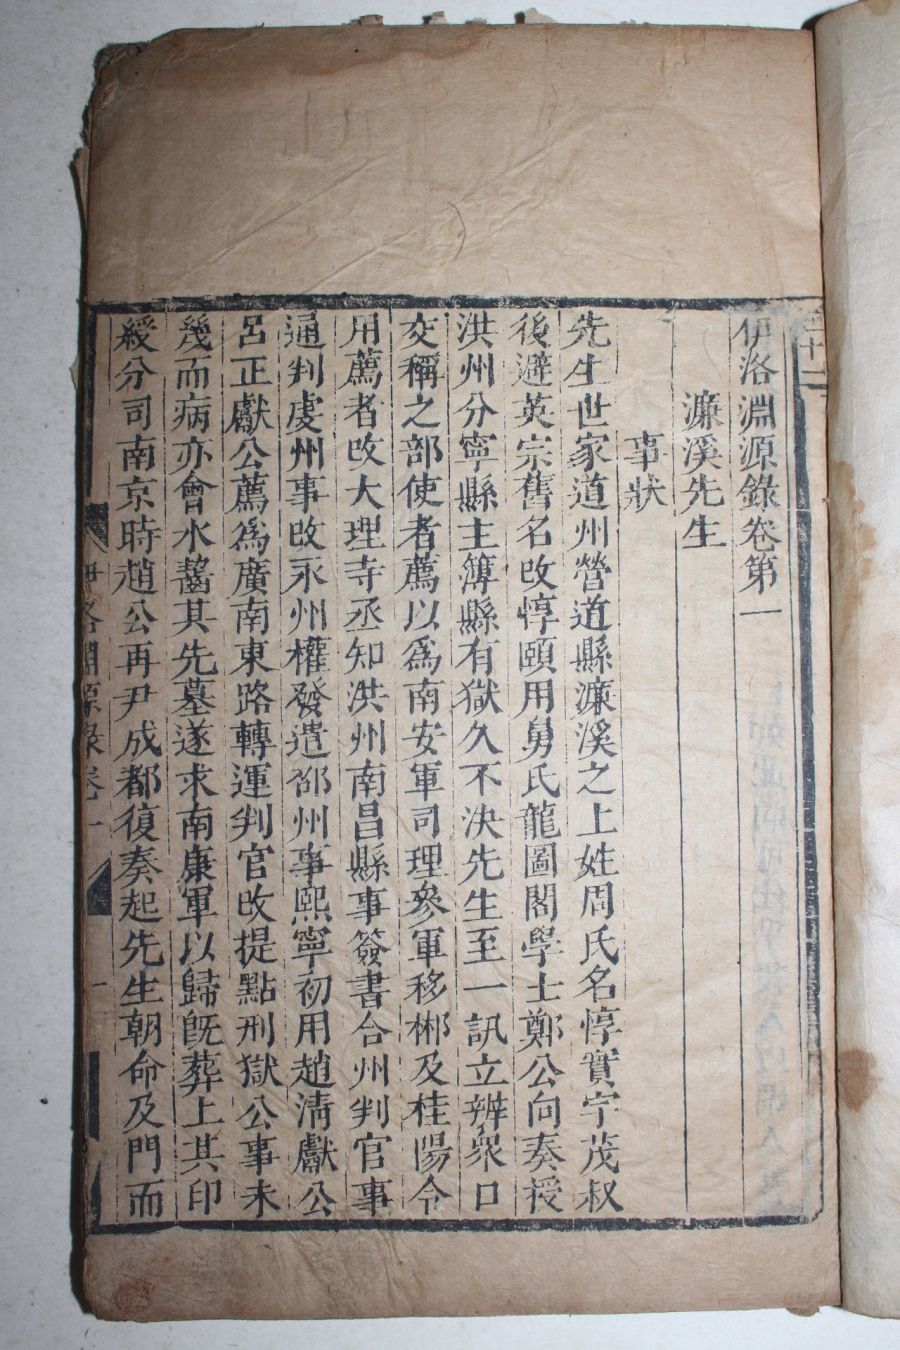 伊洛淵源錄卷第一
濂溪先生
事狀
先生世家道州營道縣濂溪之上姓周氏名惇實字茂叔
後避英宗舊名改惇頤用舅氏龍圖閣學士鄭公向奏授
洪州分寧縣主簿縣有獄久不決先生至一訊立辨衆口
交稱之部使者薦以爲南安軍司理參軍移郴及桂陽令
用薦者改大理寺丞知洪州南昌縣事簽書合州判官事
通判虔州事改永州權發遣邵州事熙寧初用趙淸獻公
呂正獻公薦爲廣南東路轉運判官改提點刑獄公事未
幾而病亦會水齧其先墓遂求南康軍以歸旣葬上其印
綬分司南京時趙公再尹成都復奏起先生朝命及門而
伊洛淵源錄卷一
一